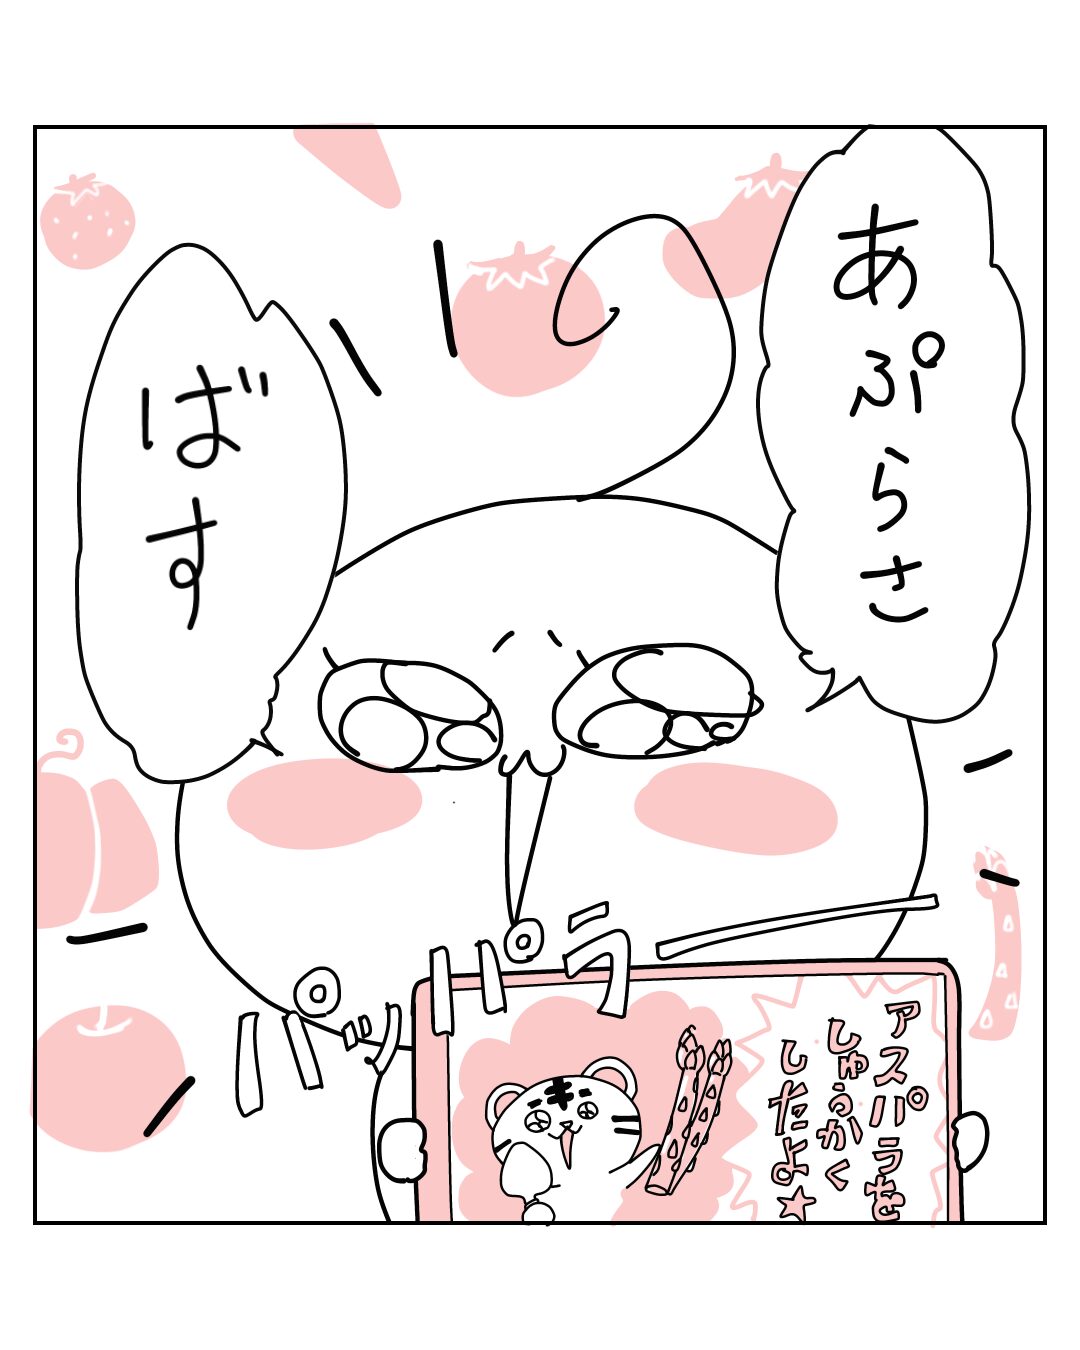 あぷらさ
ばす
パッパラー
アスパラを
しゅうかく
したよ★